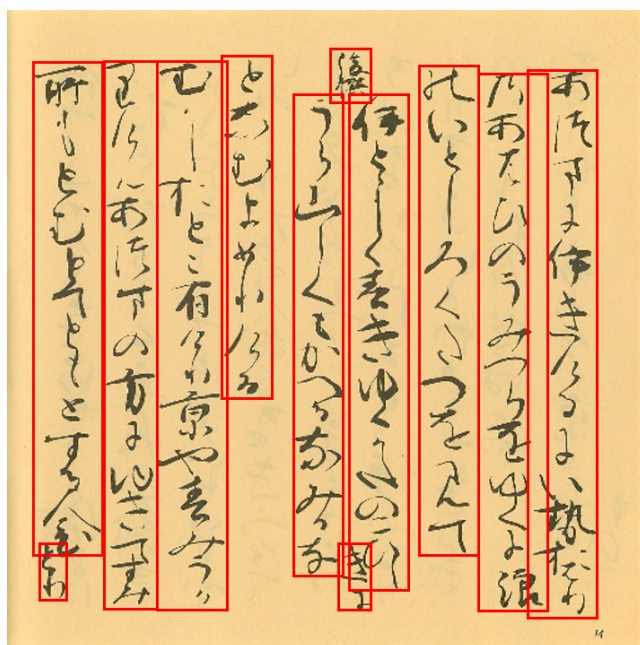 あつまにいきけるにい勢おわり
のあはひのうみつらをゆくに浪
のいとしろくたつを見て
後撰
いとゝしくすきゆくかたのこひし
きに
うら山しくもかへるなみかな
となむよめりける
むかしおとこ有けり京やすみうか
りけんあつまの方にゆきてすみ
所もとむとてともとする人
14